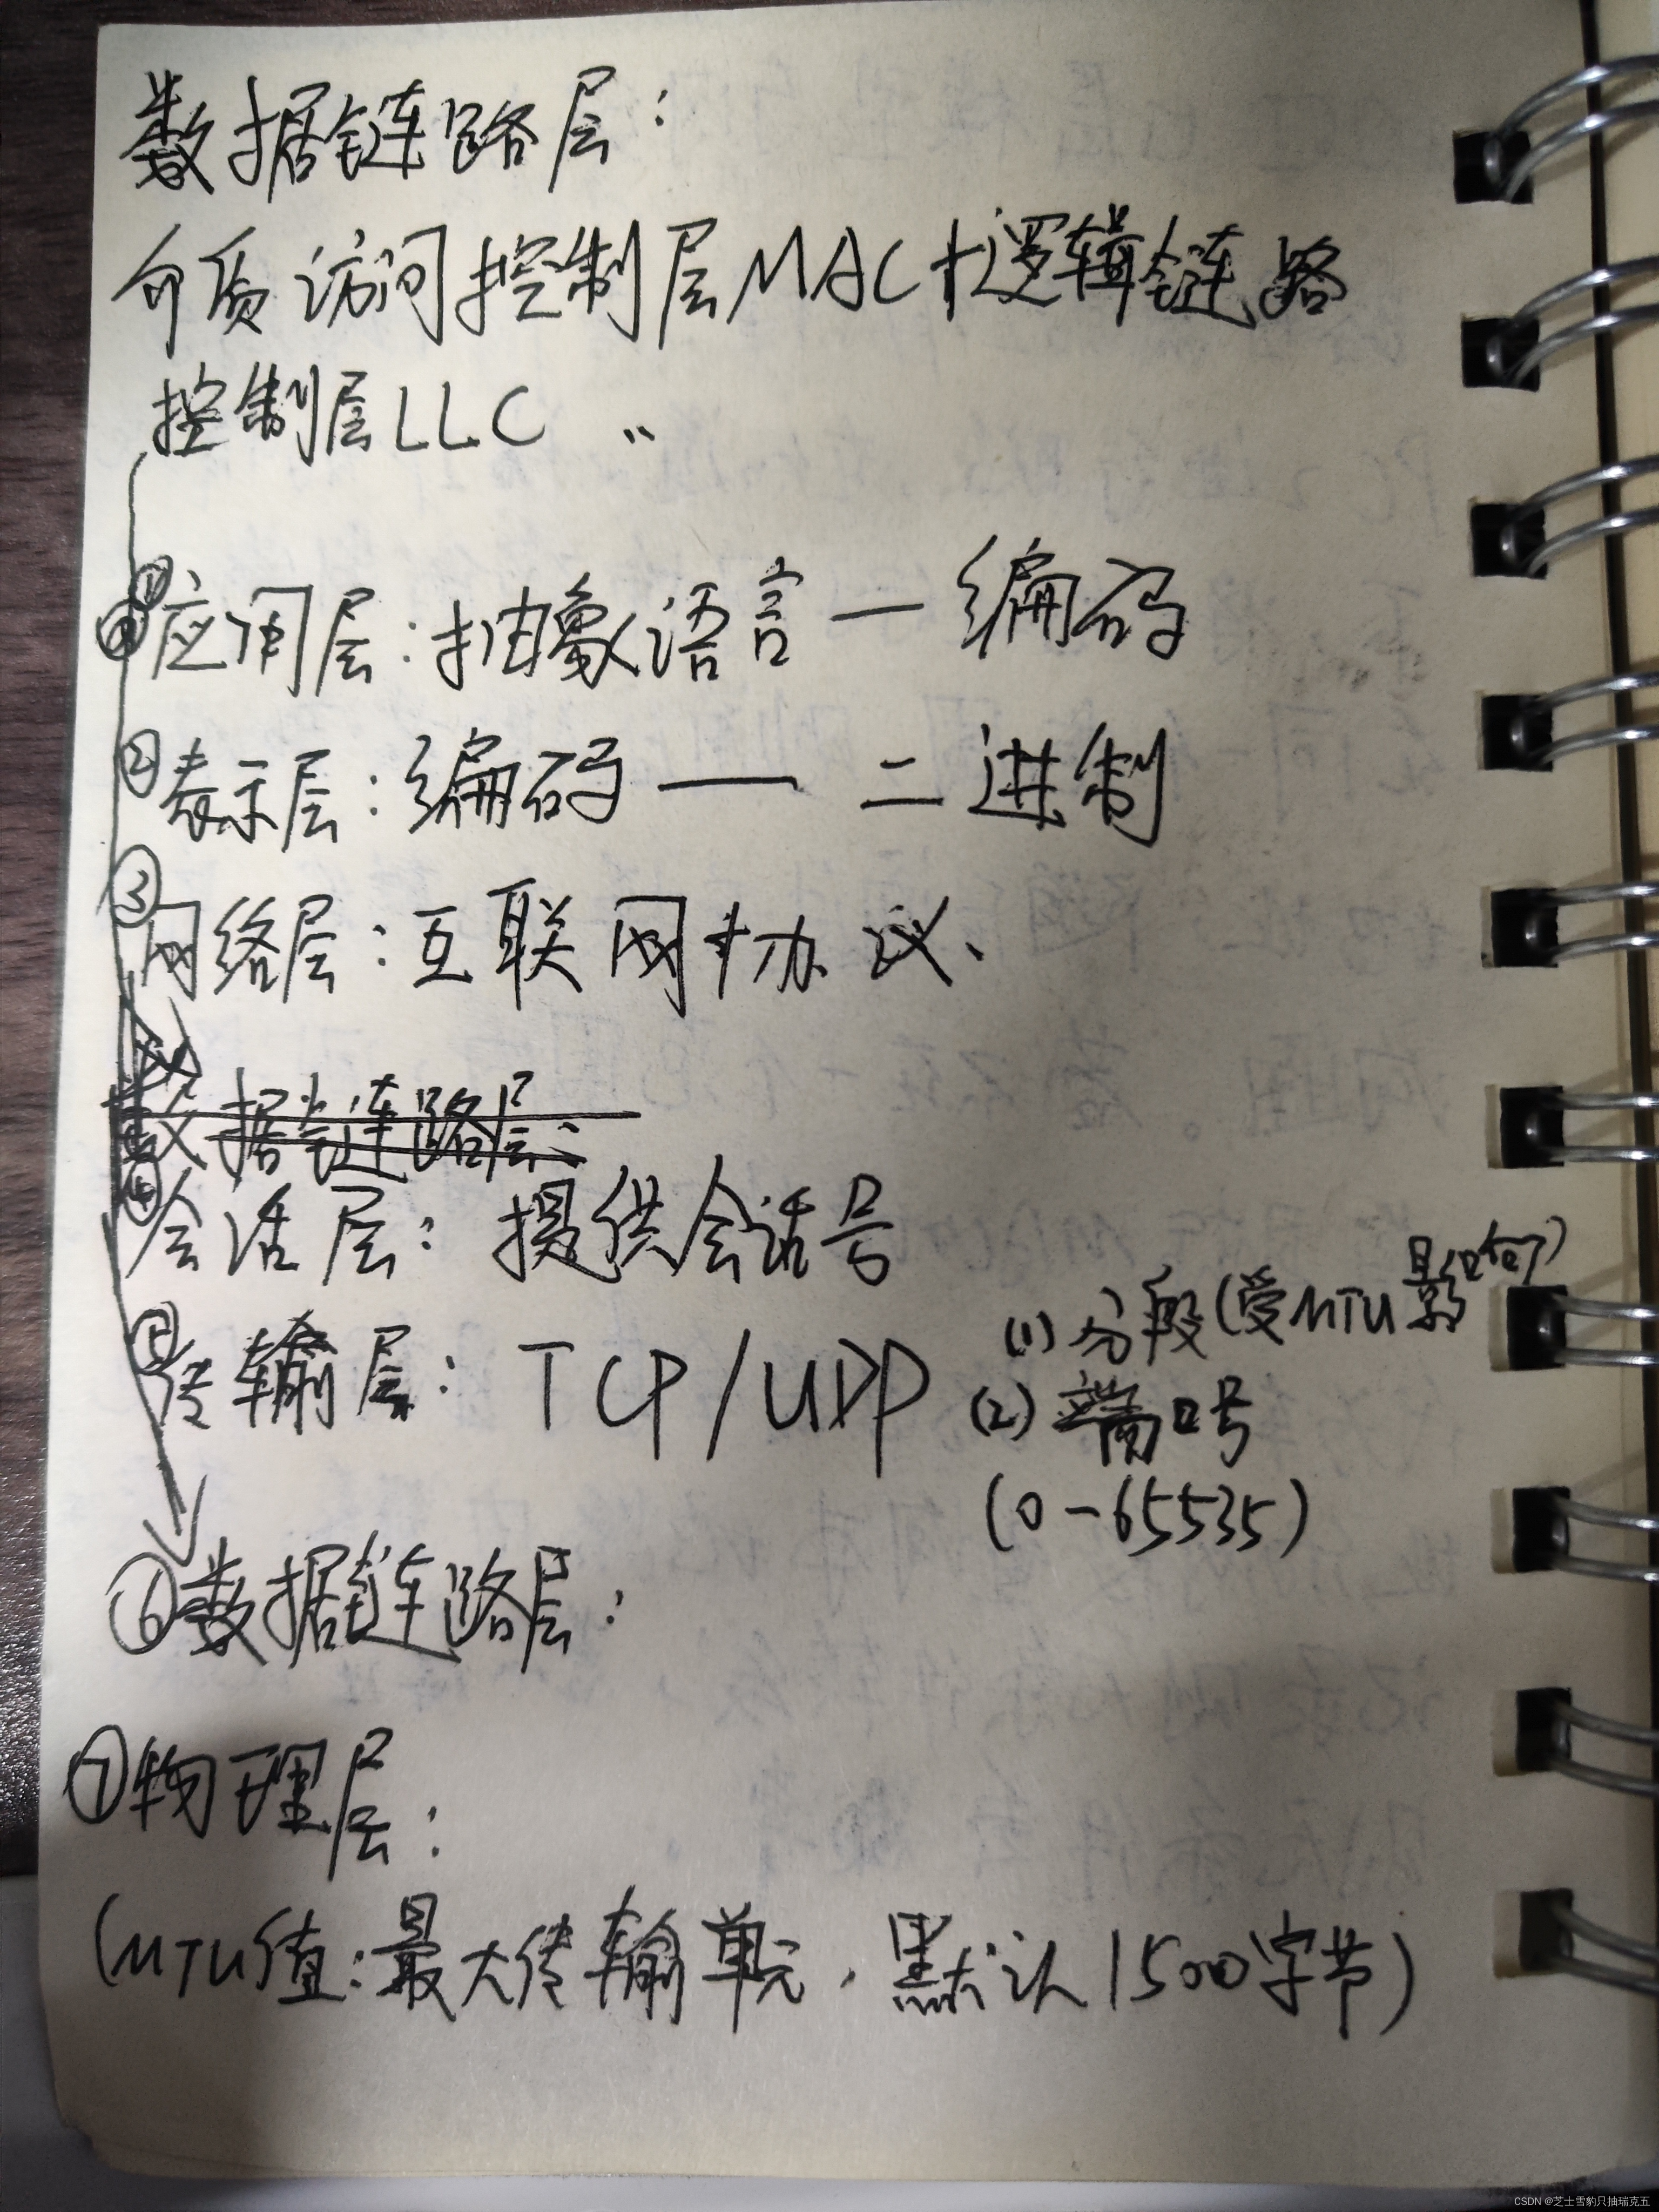 数据链路层:
介质访问控制层MAC+逻辑链路
控制层LLC
①应用层:抽象语言—编码
②表示层:编码——二进制
③网络层:互联网协议、
数据链路层:
④会话层:提供会话号
⑤传输层:TCP/UDP (1)分段(受MTU影响)
(2)端口号
(0-65535)
⑥数据链路层:
⑦物理层:
(MTU值:最大传输单元,默认1500字节)
CSDN @芝士雪豹只抽瑞克五